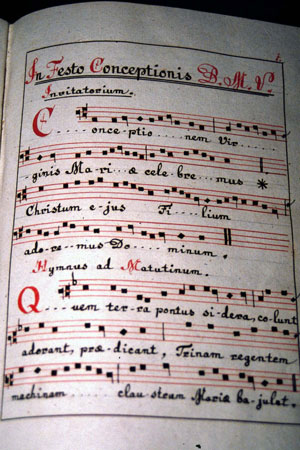 In Festo Conceptionis B. M. V.
Invitatorium.
C onceptio nem Vir
ginis Ma ri æ cele bre mus *
Christum e jus Fi lium
ado re mus Do minum.
Hymnus ad Matutinum.
Q uem ter ra pontus si dera, colunt
adorant, præ dicant, Trinam regentem
machinam clau strum Mariæ ba julat.